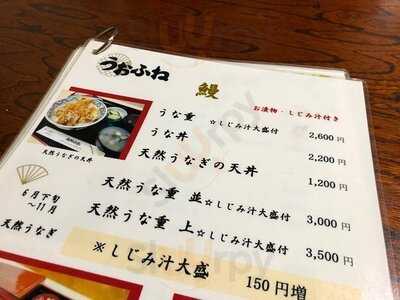 うおふね
鰻
お漬物・しじみ汁付き
うな重 ☆しじみ汁大盛付 2,600円
うな丼 2,200円
天然うなぎの天丼 1,200円
天然うな重 並☆しじみ汁大盛付 3,000円
天然うな重 上☆しじみ汁大盛付 3,500円
※しじみ汁大盛 150円増
天然うなぎの天丼
6月下旬
～11月
天然うなぎ